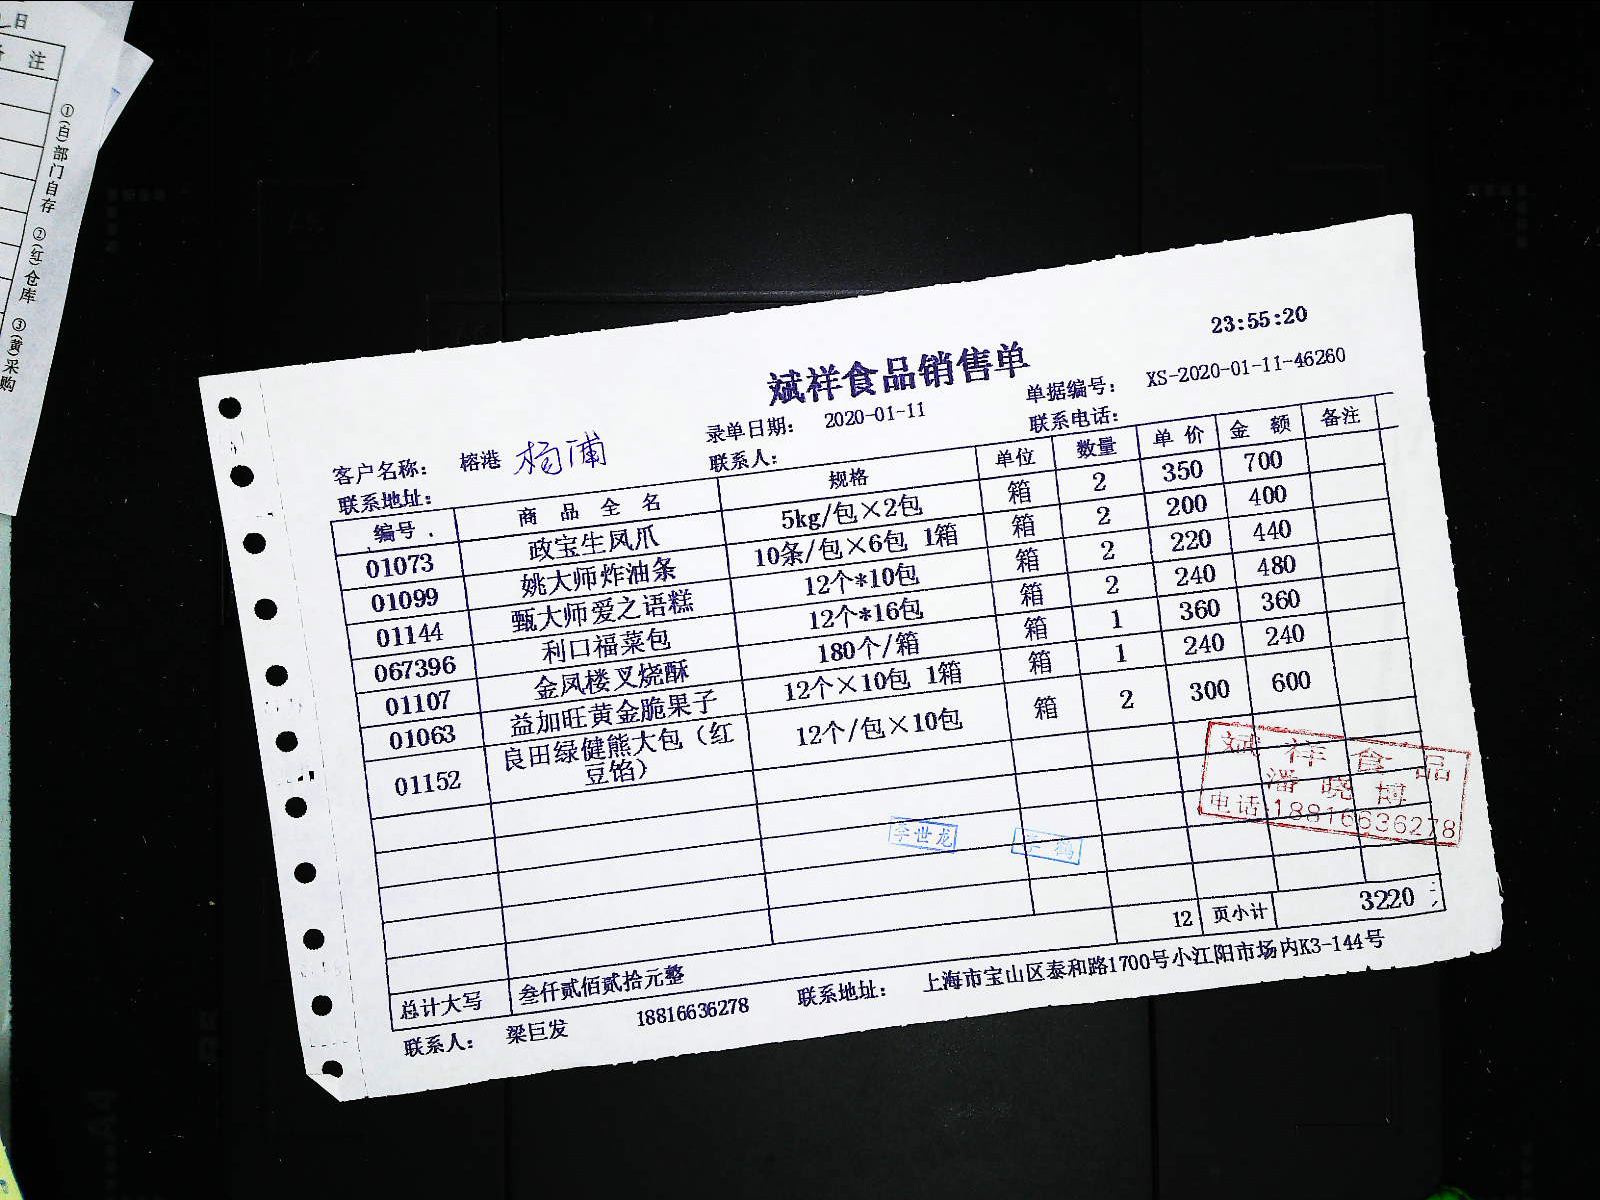 日
注
①(白)部门自存 ②(红)仓库 ③(黄)采购
23:55:20
斌祥食品销售单
录单日期: 2020-01-11 单据编号: XS-2020-01-11-46260
客户名称: 榕港 杨浦 联系人: 联系电话:
联系地址:
编号 商品全名 规格 单位 数量 单价 金额 备注
01073 政宝生凤爪 5kg/包×2包 箱 2 350 700
01099 姚大师炸油条 10条/包×6包 1箱 箱 2 200 400
01144 甄大师爱之语糕 12个*10包 箱 2 220 440
067396 利口福菜包 12个*16包 箱 2 240 480
01107 金凤楼叉烧酥 180个/箱 箱 1 360 360
01063 益加旺黄金脆果子 12个×10包 1箱 箱 1 240 240
01152 良田绿健熊大包（红豆馅） 12个/包×10包 箱 2 300 600
斌祥食品
潘晓博
电话:18816636278
李世龙
鹤
12 页小计 3220
总计大写 叁仟贰佰贰拾元整
联系人: 梁巨发 18816636278 联系地址: 上海市宝山区泰和路1700号小江阳市场内K3-144号